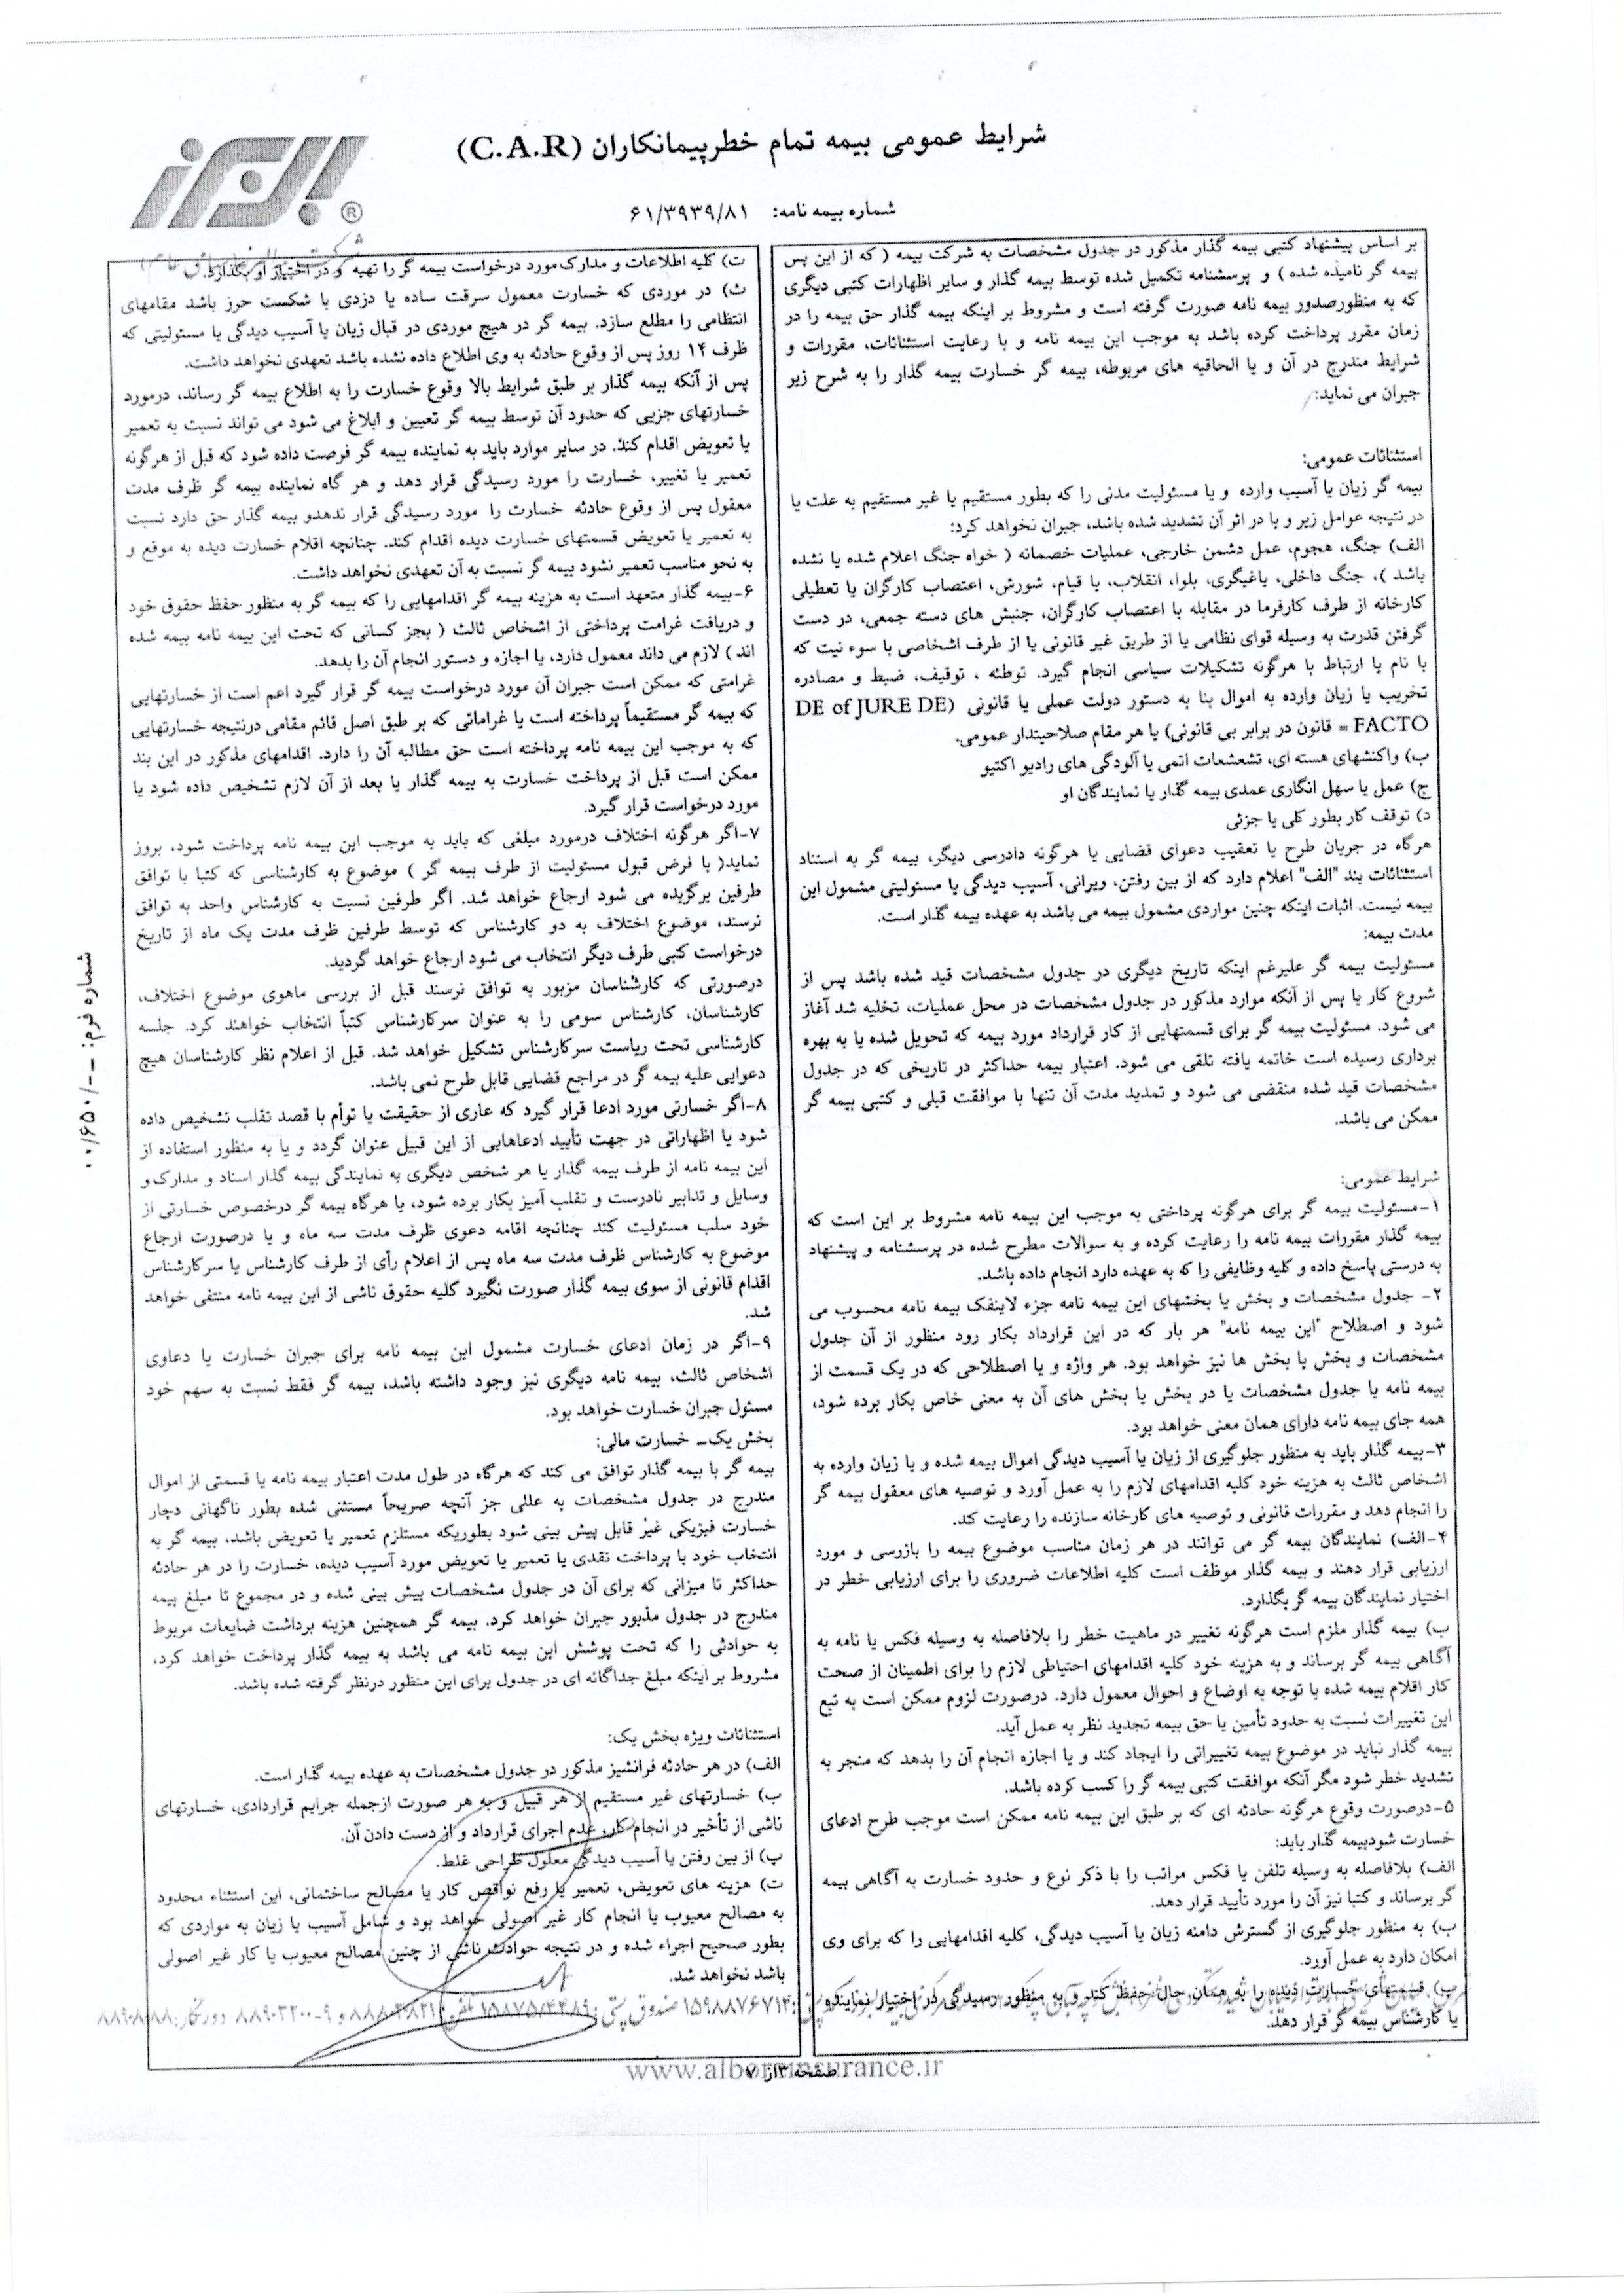 شرایط عمومی بیمه تمام خطرپیمانکاران (C.A.R)
البرز ®
شماره بیمه نامه: ۶۱/۳۹۳۹/۸۱
بر اساس پیشنهاد کتبی بیمه گذار مذکور در جدول مشخصات به شرکت بیمه ( که از این پس
بیمه گر نامیده شده ) و پرسشنامه تکمیل شده توسط بیمه گذار و سایر اظهارات کتبی دیگری
که به منظورصدور بیمه نامه صورت گرفته است و مشروط بر اینکه بیمه گذار حق بیمه را در
زمان مقرر پرداخت کرده باشد به موجب این بیمه نامه و با رعایت استثنائات، مقررات و
شرایط مندرج در آن و یا الحاقیه های مربوطه، بیمه گر خسارت بیمه گذار را به شرح زیر
جبران می نماید:
استثنائات عمومی:
بیمه گر زیان یا آسیب وارده و یا مسئولیت مدنی را که بطور مستقیم یا غیر مستقیم به علت یا
در نتیجه عوامل زیر و یا در اثر آن تشدید شده باشد، جبران نخواهد کرد:
الف) جنگ، هجوم، عمل دشمن خارجی، عملیات خصمانه ( خواه جنگ اعلام شده یا نشده
باشد )، جنگ داخلی، یاغیگری، بلوا، انقلاب، یا قیام، شورش، اعتصاب کارگران یا تعطیلی
کارخانه از طرف کارفرما در مقابله با اعتصاب کارگران، جنبش های دسته جمعی، در دست
گرفتن قدرت به وسیله قوای نظامی یا از طریق غیر قانونی یا از طرف اشخاصی با سوء نیت که
با نام یا ارتباط با هرگونه تشکیلات سیاسی انجام گیرد. توطئه ، توقیف، ضبط و مصادره
تخریب یا زیان وارده به اموال بنا به دستور دولت عملی یا قانونی (DE of JURE DE
FACTO = قانون در برابر بی قانونی) یا هر مقام صلاحیتدار عمومی.
ب) واکنشهای هسته ای، تشعشعات اتمی یا آلودگی های رادیو اکتیو
ج) عمل یا سهل انگاری عمدی بیمه گذار یا نمایندگان او
د) توقف کار بطور کلی یا جزئی
هرگاه در جریان طرح یا تعقیب دعوای قضایی یا هرگونه دادرسی دیگر، بیمه گر به استناد
استثنائات بند "الف" اعلام دارد که از بین رفتن، ویرانی، آسیب دیدگی یا مسئولیتی مشمول این
بیمه نیست. اثبات اینکه چنین مواردی مشمول بیمه می باشد به عهده بیمه گذار است.
مدت بیمه:
مسئولیت بیمه گر علیرغم اینکه تاریخ دیگری در جدول مشخصات قید شده باشد پس از
شروع کار یا پس از آنکه موارد مذکور در جدول مشخصات در محل عملیات، تخلیه شد آغاز
می شود. مسئولیت بیمه گر برای قسمتهایی از کار قرارداد مورد بیمه که تحویل شده یا به بهره
برداری رسیده است خاتمه یافته تلقی می شود. اعتبار بیمه حداکثر در تاریخی که در جدول
مشخصات قید شده منقضی می شود و تمدید مدت آن تنها با موافقت قبلی و کتبی بیمه گر
ممکن می باشد.
شرایط عمومی:
۱-مسئولیت بیمه گر برای هرگونه پرداختی به موجب این بیمه نامه مشروط بر این است که
بیمه گذار مقررات بیمه نامه را رعایت کرده و به سوالات مطرح شده در پرسشنامه و پیشنهاد
به درستی پاسخ داده و کلیه وظایفی را که به عهده دارد انجام داده باشد.
۲- جدول مشخصات و بخش یا بخشهای این بیمه نامه جزء لاینفک بیمه نامه محسوب می
شود و اصطلاح "این بیمه نامه" هر بار که در این قرارداد بکار رود منظور از آن جدول
مشخصات و بخش یا بخش ها نیز خواهد بود. هر واژه و یا اصطلاحی که در یک قسمت از
بیمه نامه یا جدول مشخصات یا در بخش یا بخش های آن به معنی خاص بکار برده شود،
همه جای بیمه نامه دارای همان معنی خواهد بود.
۳-بیمه گذار باید به منظور جلوگیری از زیان یا آسیب دیدگی اموال بیمه شده و یا زیان وارده به
اشخاص ثالث به هزینه خود کلیه اقدامهای لازم را به عمل آورد و توصیه های معقول بیمه گر
را انجام دهد و مقررات قانونی و توصیه های کارخانه سازنده را رعایت کند.
۴-الف) نمایندگان بیمه گر می توانند در هر زمان مناسب موضوع بیمه را بازرسی و مورد
ارزیابی قرار دهند و بیمه گذار موظف است کلیه اطلاعات ضروری را برای ارزیابی خطر در
اختیار نمایندگان بیمه گر بگذارد.
ب) بیمه گذار ملزم است هرگونه تغییر در ماهیت خطر را بلافاصله به وسیله فکس یا نامه به
آگاهی بیمه گر برساند و به هزینه خود کلیه اقدامهای احتیاطی لازم را برای اطمینان از صحت
کار اقلام بیمه شده با توجه به اوضاع و احوال معمول دارد. درصورت لزوم ممکن است به تبع
این تغییرات نسبت به حدود تأمین یا حق بیمه تجدید نظر به عمل آید.
بیمه گذار نباید در موضوع بیمه تغییراتی را ایجاد کند و یا اجازه انجام آن را بدهد که منجر به
تشدید خطر شود مگر آنکه موافقت کتبی بیمه گر را کسب کرده باشد.
۵-درصورت وقوع هرگونه حادثه ای که بر طبق این بیمه نامه ممکن است موجب طرح ادعای
خسارت شودبیمه گذار باید:
الف) بلافاصله به وسیله تلفن یا فکس مراتب را با ذکر نوع و حدود خسارت به آگاهی بیمه
گر برساند و کتبا نیز آن را مورد تأیید قرار دهد.
ب) به منظور جلوگیری از گسترش دامنه زیان یا آسیب دیدگی، کلیه اقدامهایی را که برای وی
امکان دارد به عمل آورد.
پ) قسمتهای خسارت دیده را به همان حال حفظ کند و به منظور رسیدگی در اختیار نماینده
یا کارشناس بیمه گر قرار دهد.
ت) کلیه اطلاعات و مدارک مورد درخواست بیمه گر را تهیه و در اختیار او بگذارد.
ث) در موردی که خسارت معمول سرقت ساده یا دزدی با شکست حرز باشد مقامهای
انتظامی را مطلع سازد. بیمه گر در هیچ موردی در قبال زیان یا آسیب دیدگی یا مسئولیتی که
ظرف ۱۴ روز پس از وقوع حادثه به وی اطلاع داده نشده باشد تعهدی نخواهد داشت.
پس از آنکه بیمه گذار بر طبق شرایط بالا وقوع خسارت را به اطلاع بیمه گر رساند، درمورد
خسارتهای جزیی که حدود آن توسط بیمه گر تعیین و ابلاغ می شود می تواند نسبت به تعمیر
یا تعویض اقدام کند. در سایر موارد باید به نماینده بیمه گر فرصت داده شود که قبل از هرگونه
تعمیر یا تغییر، خسارت را مورد رسیدگی قرار دهد و هر گاه نماینده بیمه گر ظرف مدت
معقول پس از وقوع حادثه خسارت را مورد رسیدگی قرار ندهدو بیمه گذار حق دارد نسبت
به تعمیر یا تعویض قسمتهای خسارت دیده اقدام کند. چنانچه اقلام خسارت دیده به موقع و
به نحو مناسب تعمیر نشود بیمه گر نسبت به آن تعهدی نخواهد داشت.
۶-بیمه گذار متعهد است به هزینه بیمه گر اقدامهایی را که بیمه گر به منظور حفظ حقوق خود
و دریافت غرامت پرداختی از اشخاص ثالث ( بجز کسانی که تحت این بیمه نامه بیمه شده
اند ) لازم می داند معمول دارد، یا اجازه و دستور انجام آن را بدهد.
غرامتی که ممکن است جبران آن مورد درخواست بیمه گر قرار گیرد اعم است از خسارتهایی
که بیمه گر مستقیماً پرداخته است یا غراماتی که بر طبق اصل قائم مقامی درنتیجه خسارتهایی
که به موجب این بیمه نامه پرداخته است حق مطالبه آن را دارد. اقدامهای مذکور در این بند
ممکن است قبل از پرداخت خسارت به بیمه گذار یا بعد از آن لازم تشخیص داده شود یا
مورد درخواست قرار گیرد.
۷-اگر هرگونه اختلاف درمورد مبلغی که باید به موجب این بیمه نامه پرداخت شود، بروز
نماید( با فرض قبول مسئولیت از طرف بیمه گر ) موضوع به کارشناسی که کتبا با توافق
طرفین برگزیده می شود ارجاع خواهد شد. اگر طرفین نسبت به کارشناس واحد به توافق
نرسند، موضوع اختلاف به دو کارشناس که توسط طرفین ظرف مدت یک ماه از تاریخ
درخواست کتبی طرف دیگر انتخاب می شود ارجاع خواهد گردید.
درصورتی که کارشناسان مزبور به توافق نرسند قبل از بررسی ماهوی موضوع اختلاف،
کارشناسان، کارشناس سومی را به عنوان سرکارشناس کتباً انتخاب خواهند کرد. جلسه
کارشناسی تحت ریاست سرکارشناس تشکیل خواهد شد. قبل از اعلام نظر کارشناسان هیچ
دعوایی علیه بیمه گر در مراجع قضایی قابل طرح نمی باشد.
۸-اگر خسارتی مورد ادعا قرار گیرد که عاری از حقیقت یا توأم با قصد تقلب تشخیص داده
شود یا اظهاراتی در جهت تأیید ادعاهایی از این قبیل عنوان گردد و یا به منظور استفاده از
این بیمه نامه از طرف بیمه گذار یا هر شخص دیگری به نمایندگی بیمه گذار اسناد و مدارک و
وسایل و تدابیر نادرست و تقلب آمیز بکار برده شود، یا هرگاه بیمه گر درخصوص خسارتی از
خود سلب مسئولیت کند چنانچه اقامه دعوی ظرف مدت سه ماه و یا درصورت ارجاع
موضوع به کارشناس ظرف مدت سه ماه پس از اعلام رأی از طرف کارشناس یا سرکارشناس
اقدام قانونی از سوی بیمه گذار صورت نگیرد کلیه حقوق ناشی از این بیمه نامه منتفی خواهد
شد.
۹-اگر در زمان ادعای خسارت مشمول این بیمه نامه برای جبران خسارت یا دعاوی
اشخاص ثالث، بیمه نامه دیگری نیز وجود داشته باشد، بیمه گر فقط نسبت به سهم خود
مسئول جبران خسارت خواهد بود.
بخش یک_ خسارت مالی:
بیمه گر با بیمه گذار توافق می کند که هرگاه در طول مدت اعتبار بیمه نامه یا قسمتی از اموال
مندرج در جدول مشخصات به عللی جز آنچه صریحاً مستثنی شده بطور ناگهانی دچار
خسارت فیزیکی غیر قابل پیش بینی شود بطوریکه مستلزم تعمیر یا تعویض باشد، بیمه گر به
انتخاب خود با پرداخت نقدی یا تعمیر یا تعویض مورد آسیب دیده، خسارت را در هر حادثه
حداکثر تا میزانی که برای آن در جدول مشخصات پیش بینی شده و در مجموع تا مبلغ بیمه
مندرج در جدول مذبور جبران خواهد کرد. بیمه گر همچنین هزینه برداشت ضایعات مربوط
به حوادثی را که تحت پوشش این بیمه نامه می باشد به بیمه گذار پرداخت خواهد کرد،
مشروط بر اینکه مبلغ جداگانه ای در جدول برای این منظور درنظر گرفته شده باشد.
استثنائات ویژه بخش یک:
الف) در هر حادثه فرانشیز مذکور در جدول مشخصات به عهده بیمه گذار است.
ب) خسارتهای غیر مستقیم از هر قبیل و به هر صورت ازجمله جرایم قراردادی، خسارتهای
ناشی از تأخیر در انجام کار، عدم اجرای قرارداد و از دست دادن آن.
پ) از بین رفتن یا آسیب دیدگی معلول طراحی غلط.
ت) هزینه های تعویض، تعمیر یا رفع نواقص کار یا مصالح ساختمانی، این استثناء محدود
به مصالح معیوب یا انجام کار غیر اصولی خواهد بود و شامل آسیب یا زیان به مواردی که
بطور صحیح اجراء شده و در نتیجه حوادث ناشی از چنین مصالح معیوب یا کار غیر اصولی
باشد نخواهد شد.
۱۵۹۸۸۷۶۷۱۴ صندوق پستی: ۱۵۸۷۵/۴۴۸۹ تلفن: ۸۸۸۰۳۸۲۱ و ۹-۸۸۹۰۳۲۰۰ دورنگار: ۸۸۹۰۸۰۸۸
www.alborzinsurance.ir
صفحه ۳ از ۷
شماره فرم: ۰۰/۶۵۰/۰۰